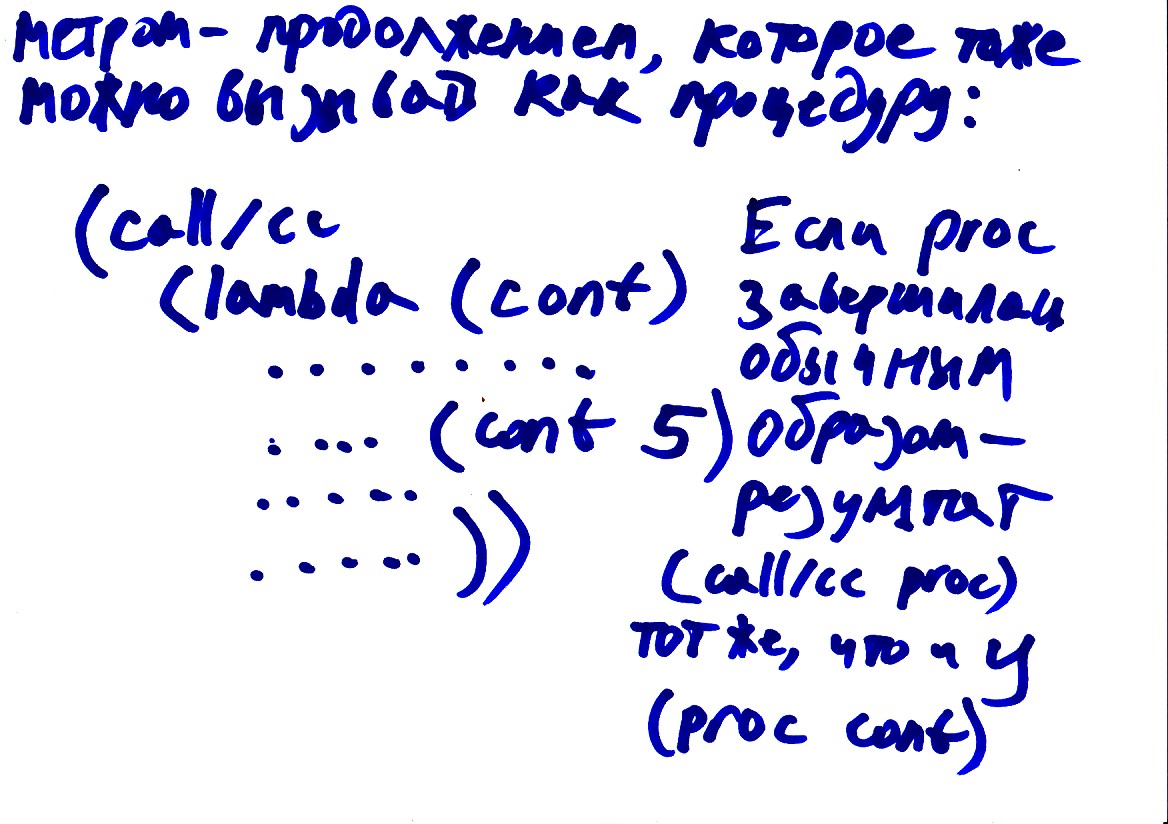 метром - продолжением, которое тоже
можно вызывать как процедуру:
(call/cc
(lambda (cont)
. . . . . . . .
. . . . (cont 5)
. . . . .
. . . . . ))
Если proc
завершилась
обычным
образом —
результат
(call/cc proc)
тот же, что и у
(proc cont)